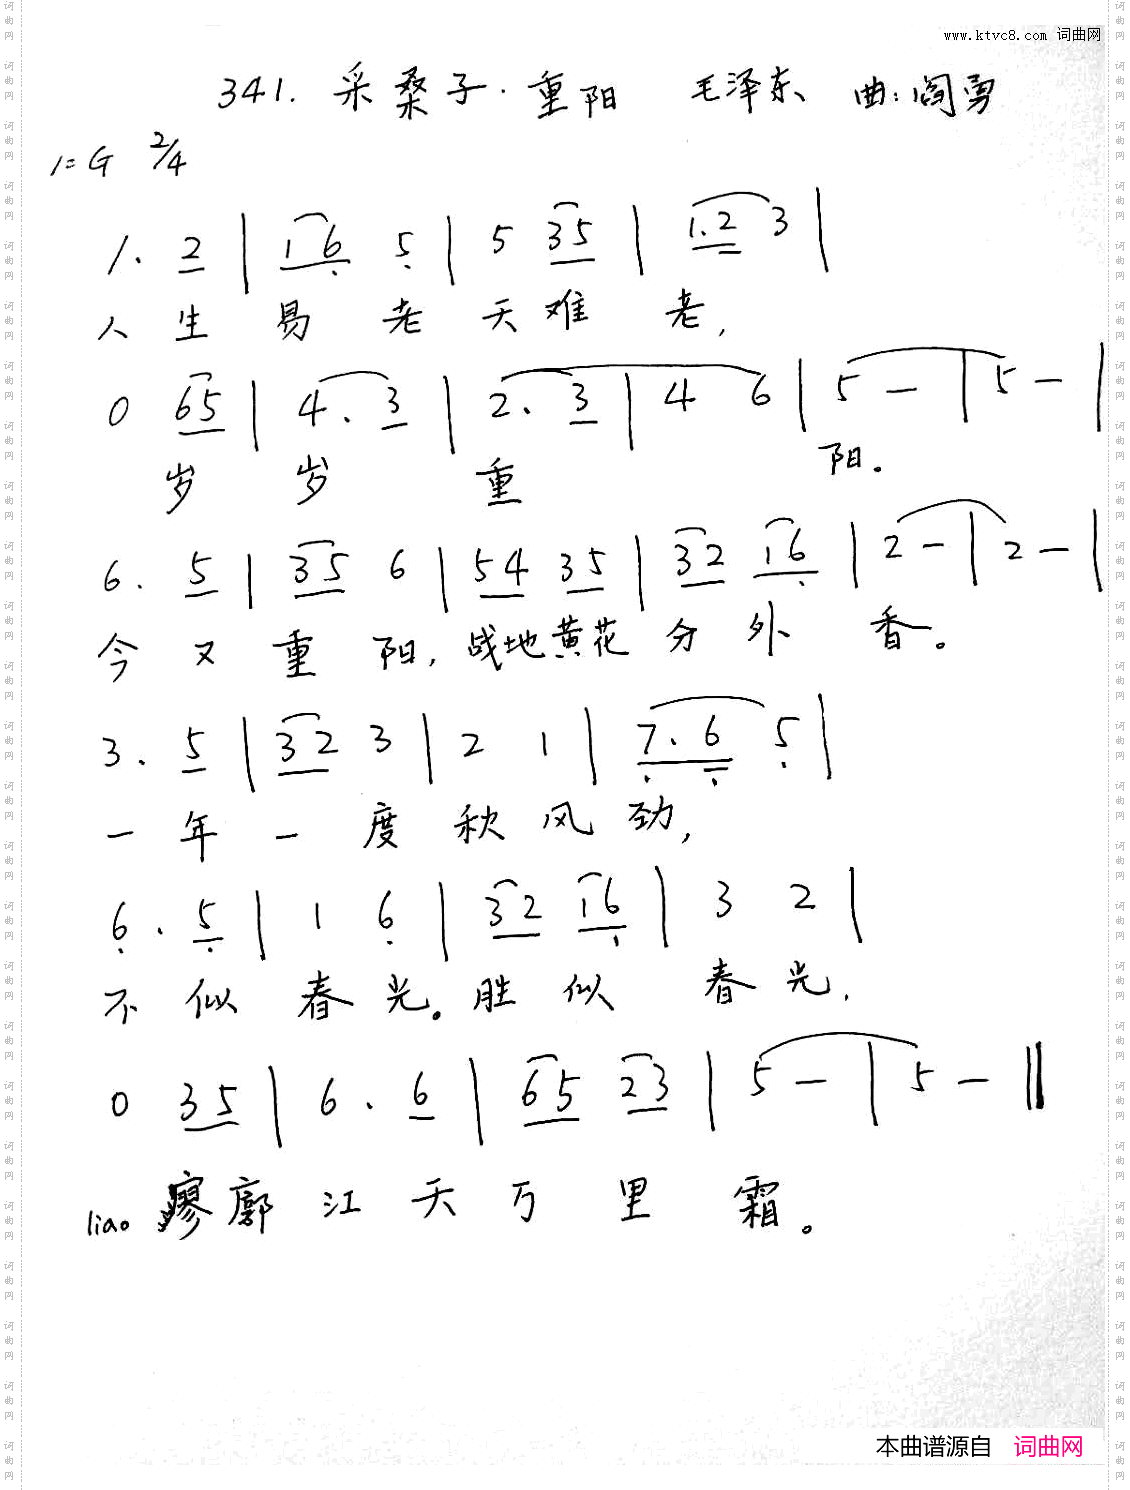 www.ktvc8.com 词曲网
341. 采桑子·重阳 毛泽东 曲:阎勇
1=G 2/4
1. 2 | 1 6 5 | 5 3 5 | 1. 2 3 |
人 生 易 老 天 难 老,
0 6 5 | 4. 3 | 2. 3 | 4 6 | 5 — | 5 — |
岁 岁 重 阳。
6. 5 | 3 5 6 | 5 4 3 5 | 3 2 1 6 | 2 — | 2 — |
今 又 重 阳, 战地黄花 分 外 香。
3. 5 | 3 2 3 | 2 1 | 7. 6 5 |
一 年 一 度 秋 风 劲,
6. 5 | 1 6 | 3 2 1 6 | 3 2 |
不 似 春 光。胜 似 春 光,
0 3 5 | 6. 6 | 6 5 2 3 | 5 — | 5 — ‖
liao 廖 廓 江 天 万 里 霜。
本曲谱源自 词曲网